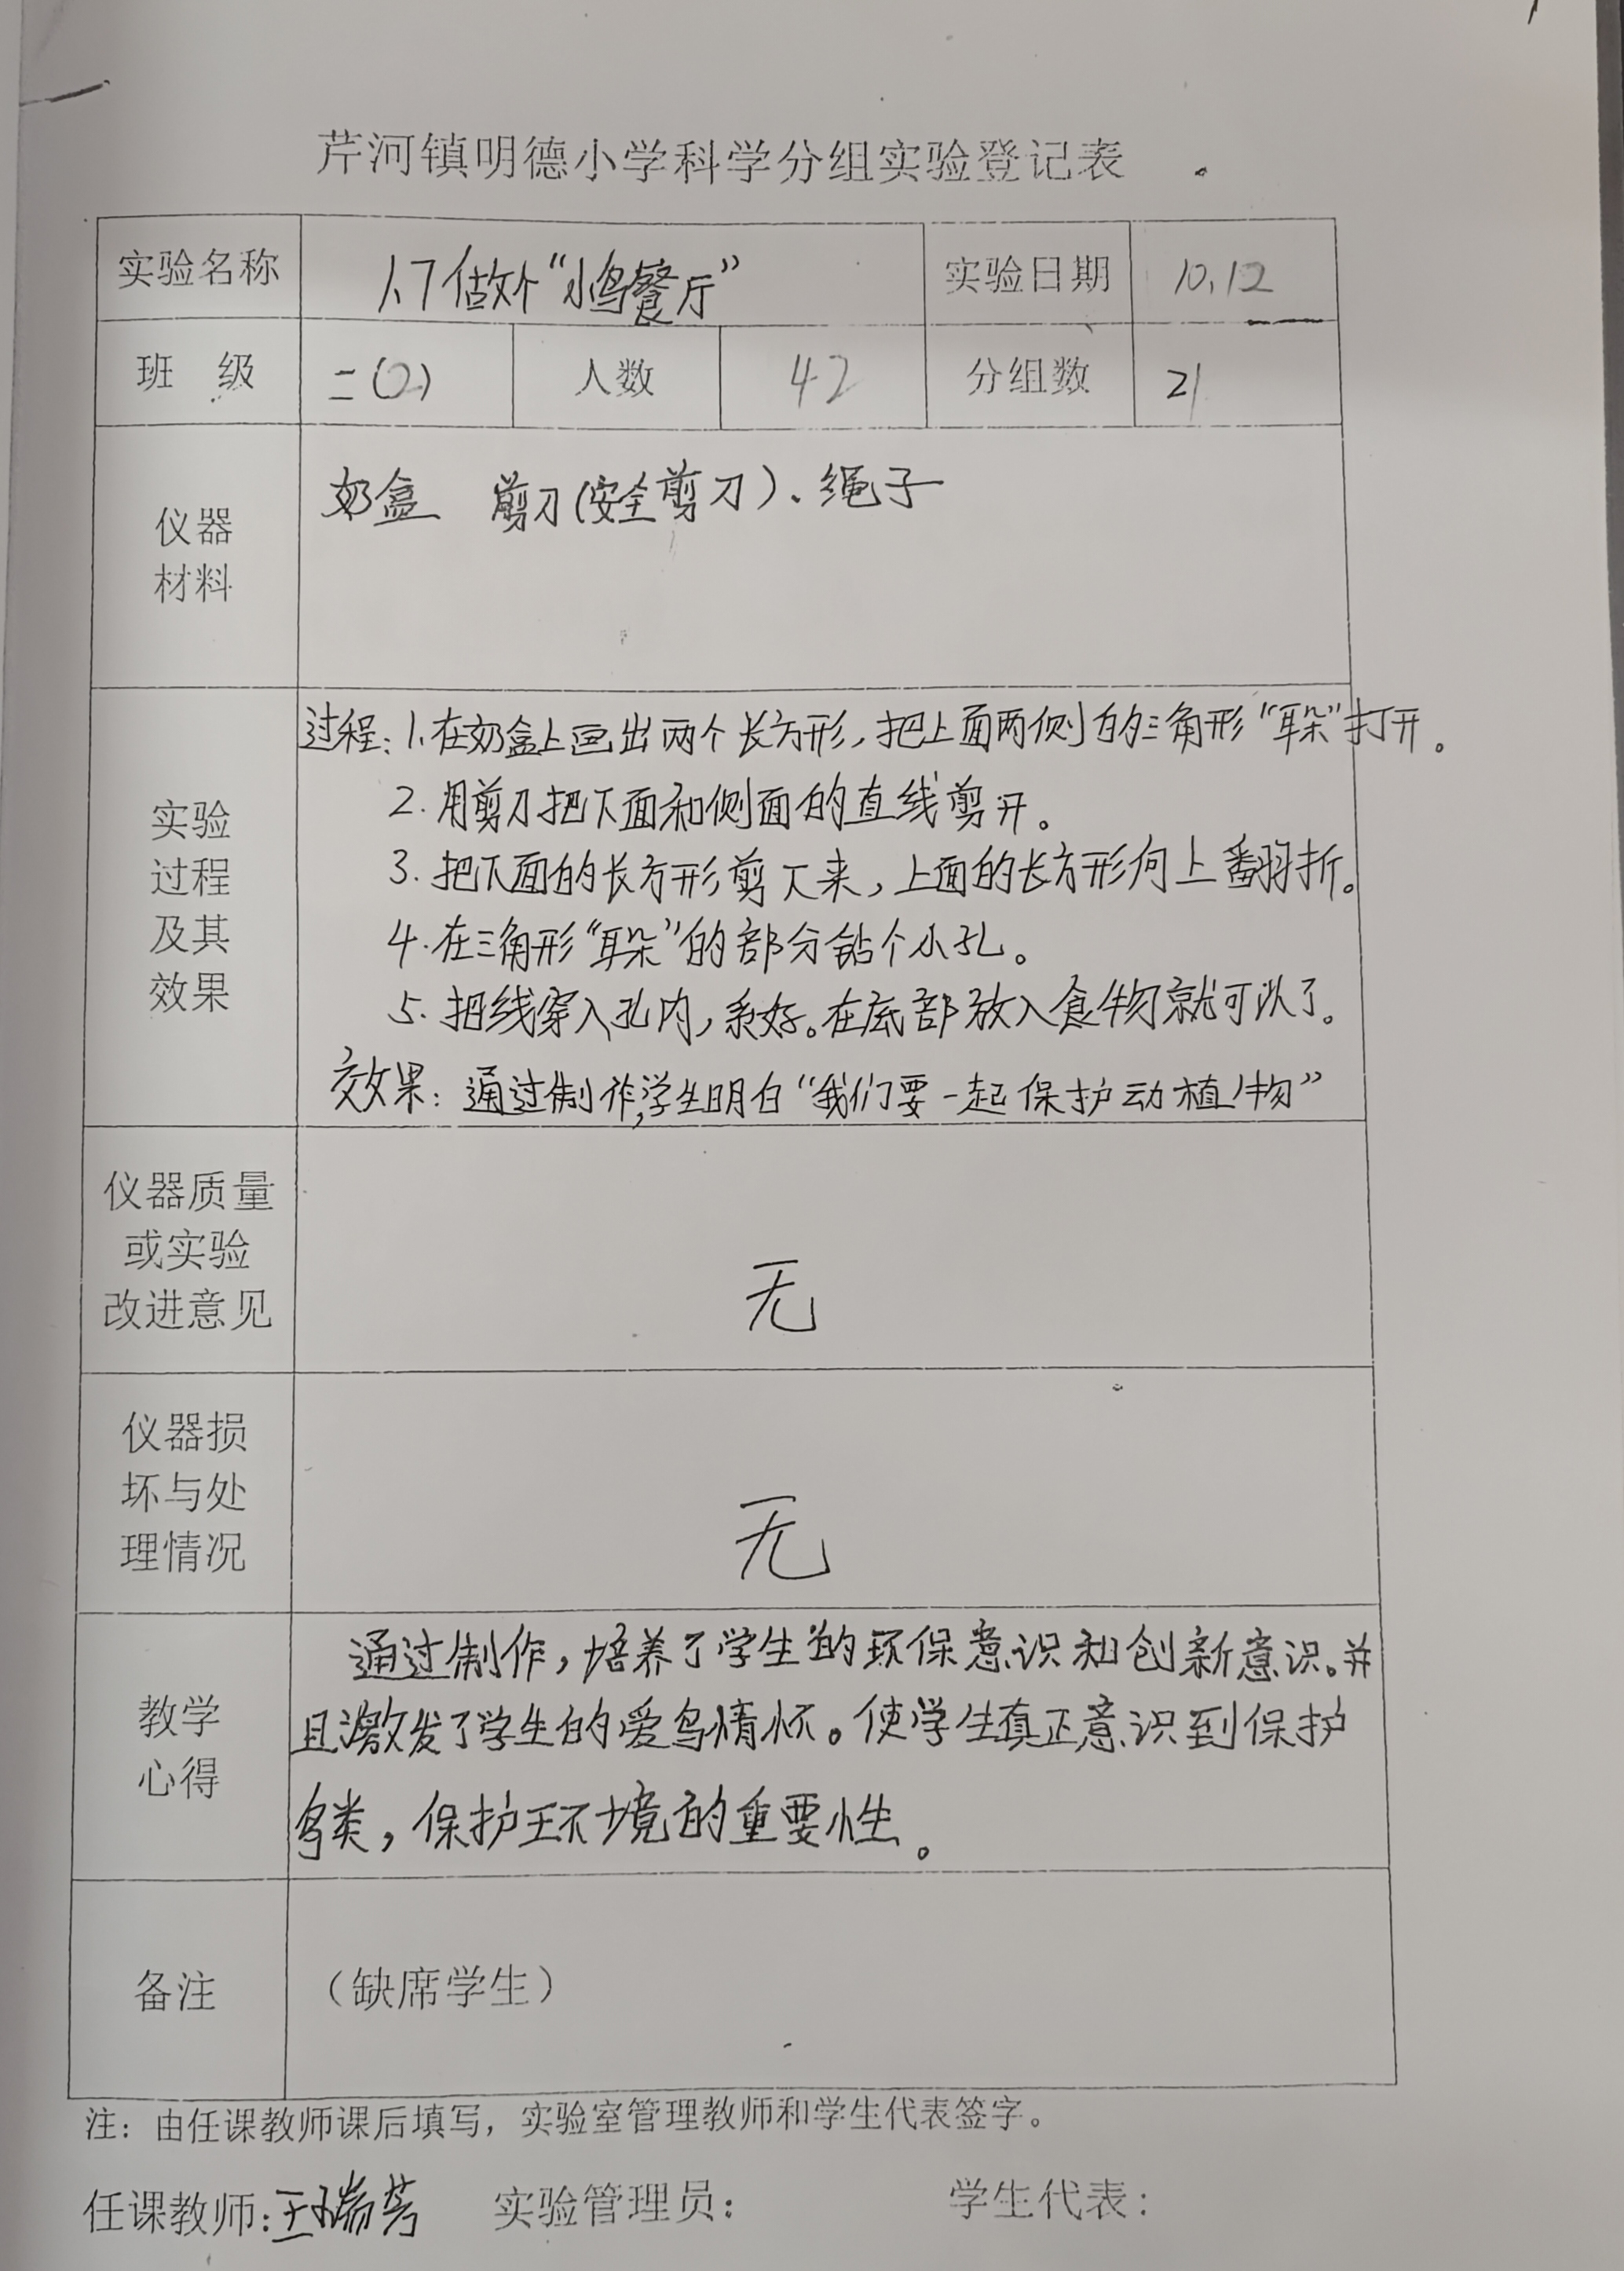 芹河镇明德小学科学分组实验登记表
实验名称 做个“小鸟餐厅” 实验日期 10.12
班 级 二(2) 人数 42 分组数 21
仪器
材料
奶盒 剪刀(安全剪刀)、绳子
实验
过程
及其
效果
过程: 1.在奶盒上画出两个长方形,把上面两侧的三角形“耳朵”打开。
2.用剪刀把下面和侧面的直线剪开。
3.把下面的长方形剪下来,上面的长方形向上翻折。
4.在三角形“耳朵”的部分钻个小孔。
5.把线穿入孔内,系好。在底部放入食物就可以了。
效果: 通过制作,学生明白“我们要一起保护动植物”
仪器质量
或实验
改进意见
无
仪器损
坏与处
理情况
无
教学
心得
通过制作,培养了学生的环保意识和创新意识。并
且激发了学生的爱鸟情怀。使学生真正意识到保护
鸟类,保护环境的重要性。
备注
(缺席学生)
注: 由任课教师课后填写, 实验室管理教师和学生代表签字。
任课教师:王瑞芳 实验管理员: 学生代表: